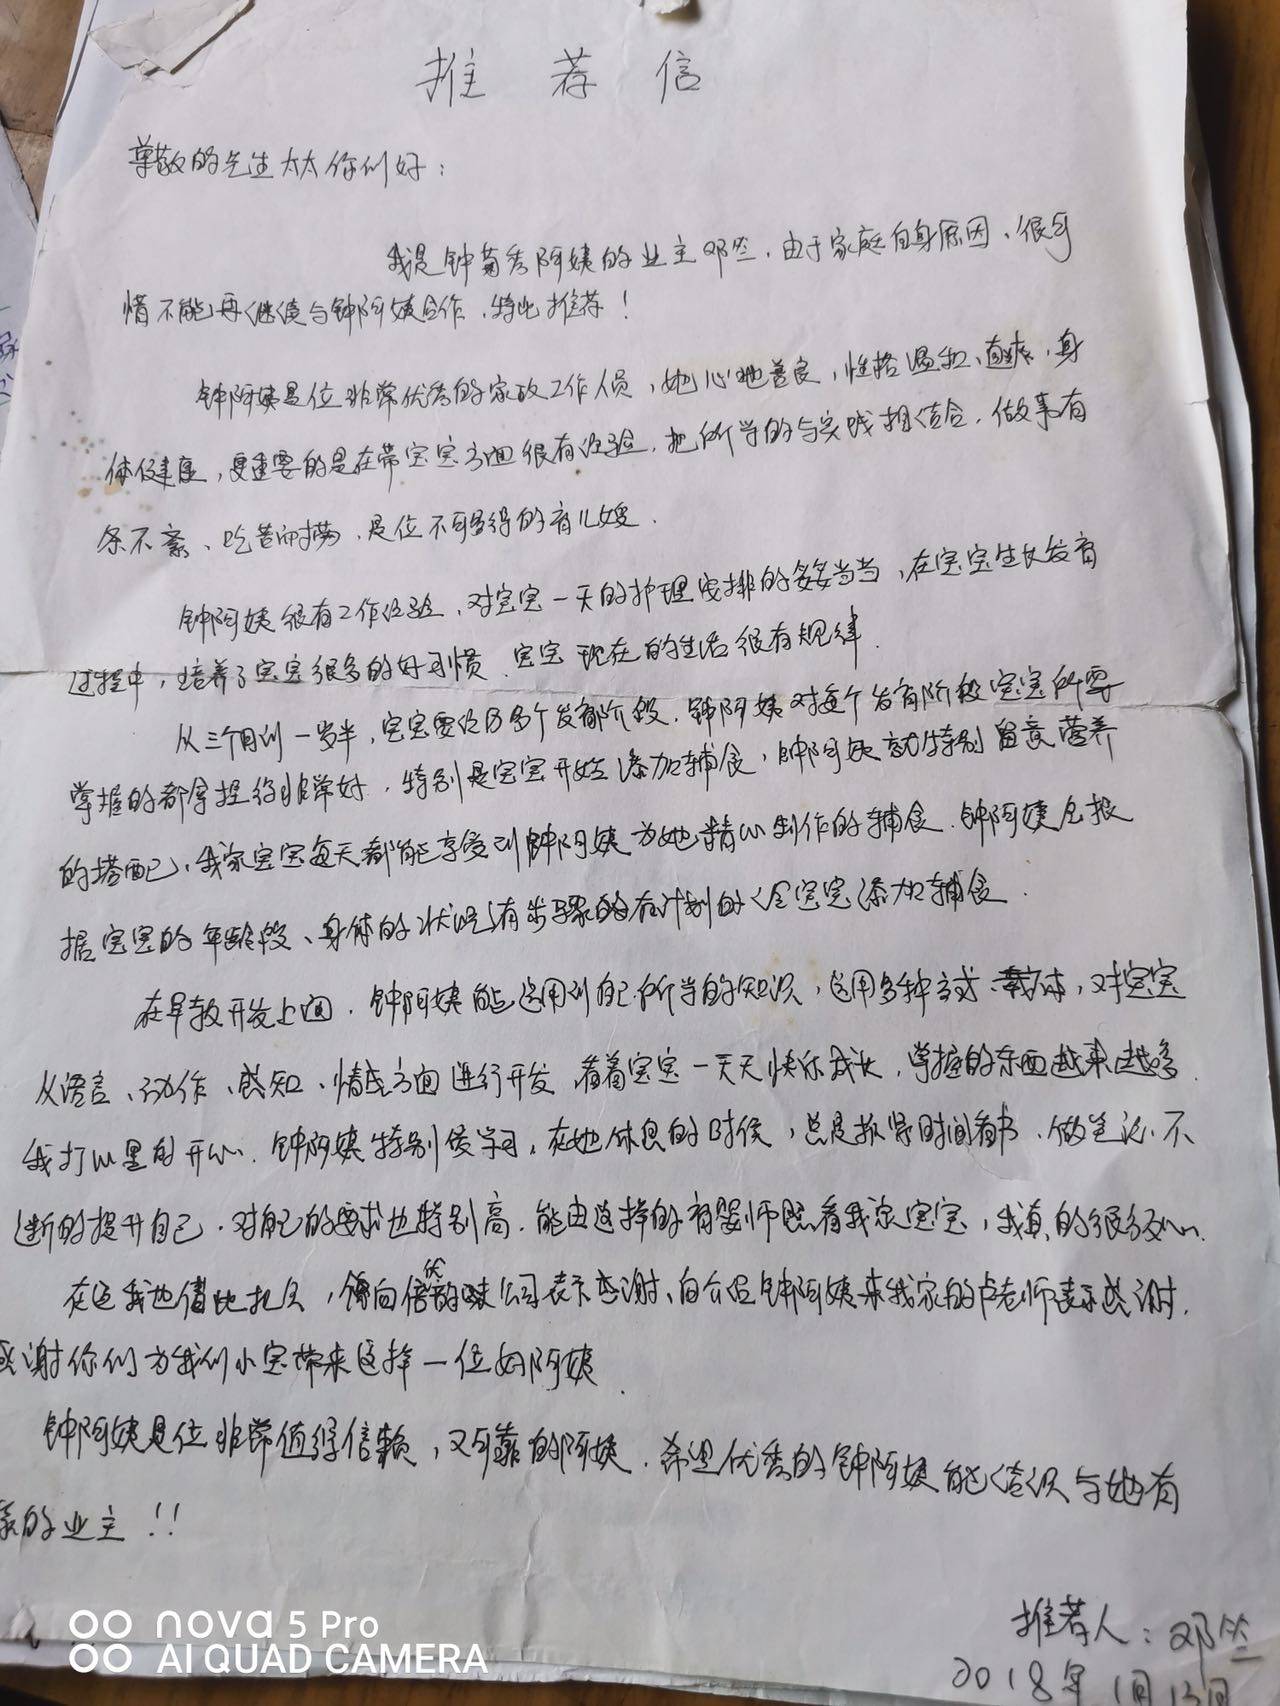 推荐信
尊敬的先生太太你们好：
我是钟菊秀阿姨的业主邓竺，由于家庭自身原因、很可
惜不能再继续与钟阿姨合作，特此推荐！
钟阿姨是位非常优秀的家政工作人员，她心地善良，性格温和、直爽、身
体健康，更重要的是在带宝宝方面很有经验，把所学的与实践相结合，做事有
条不紊、吃苦耐捞，是位不可多得的育儿嫂．
钟阿姨很有工作经验，对宝宝一天的护理安排的妥妥当当，在宝宝生长发育
过程中，培养了宝宝很多的好习惯．宝宝现在的生活很有规律．
从三个月到一岁半，宝宝要经历多个发育阶段，钟阿姨对每个发育阶段宝宝所要
掌握的都拿捏得非常好，特别是宝宝开始添加辅食，钟阿姨就特别留意营养
的搭配，我家宝宝每天都能享受到钟阿姨为她精心制作的辅食．钟阿姨会根
据宝宝的年龄段、身体的状况有步骤的有计划的给宝宝添加辅食．
在早教开发上面，钟阿姨能运用到自己所学的知识，运用多种方式，对宝宝
从语言、动作、感知、情感方面进行开发，看着宝宝一天天快乐成长，掌握的东西越来越多．
我打心里的开心．钟阿姨特别爱学习，在她休息的时候，总是抓紧时间看书、做笔记、不
断的提升自己．对自己的要求也特别高．能由这样的育婴师照看我家宝宝，我真的很放心．
在这我也借此机会，向公司表示感谢、向介绍钟阿姨来我家的卢老师表示感谢．
感谢你们为我们小宝带来这样一位好阿姨．
钟阿姨是位非常值得信赖，又可靠的阿姨．希望优秀的钟阿姨能结识与她有
的业主！！
推荐人：邓竺
2018年1月13日
nova 5 Pro
AI QUAD CAMERA